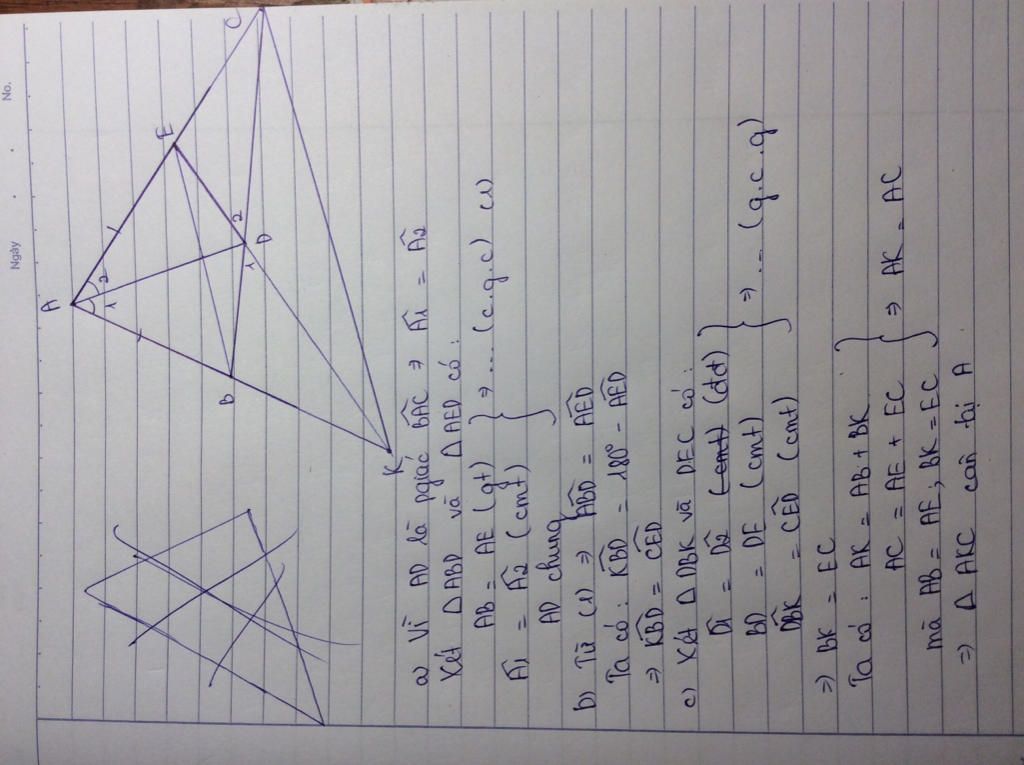 Ngày
No.
A
1
2
B
E
1
2
D
C
K
a) Vì AD là pgiác BAC⏞ → Â1 = Â2
Xét △ ABD và △ AED có :
AB = AE (gt)
Â1 = Â2 (cmt) } ⇒ ... (c.g.c) (1)
AD chung
b) Từ (1) ⇒ ABD⏞ = AED⏞
Ta có : KBD⏞ = 180° - AED⏞
⇒ KBD⏞ = CED⏞
c) Xét △ DBK và DEC có :
D̂1 = D̂2 (cmt) (đđ)
BD = DE (cmt) } ⇒ ... (g.c.g)
DBK⏞ = CED⏞ (cmt)
⇒ BK = EC
Ta có : AK = AB + BK
AC = AE + EC } ⇒ AK = AC
mà AB = AE, BK = EC
⇒ △ AKC cân tại A